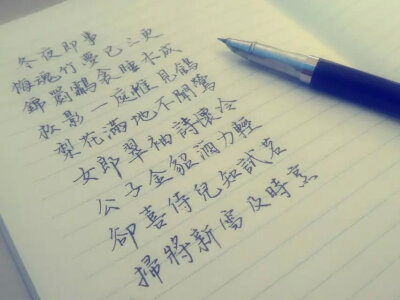 冬夜即事
梅魂竹夢已三更
錦罽鸘衾睡未成
松影一庭惟見鶴
梨花滿地不聞鶯
女郎翠袖詩懷冷
公子金貂酒力輕
卻喜侍兒知試茗
掃將新雪及時烹